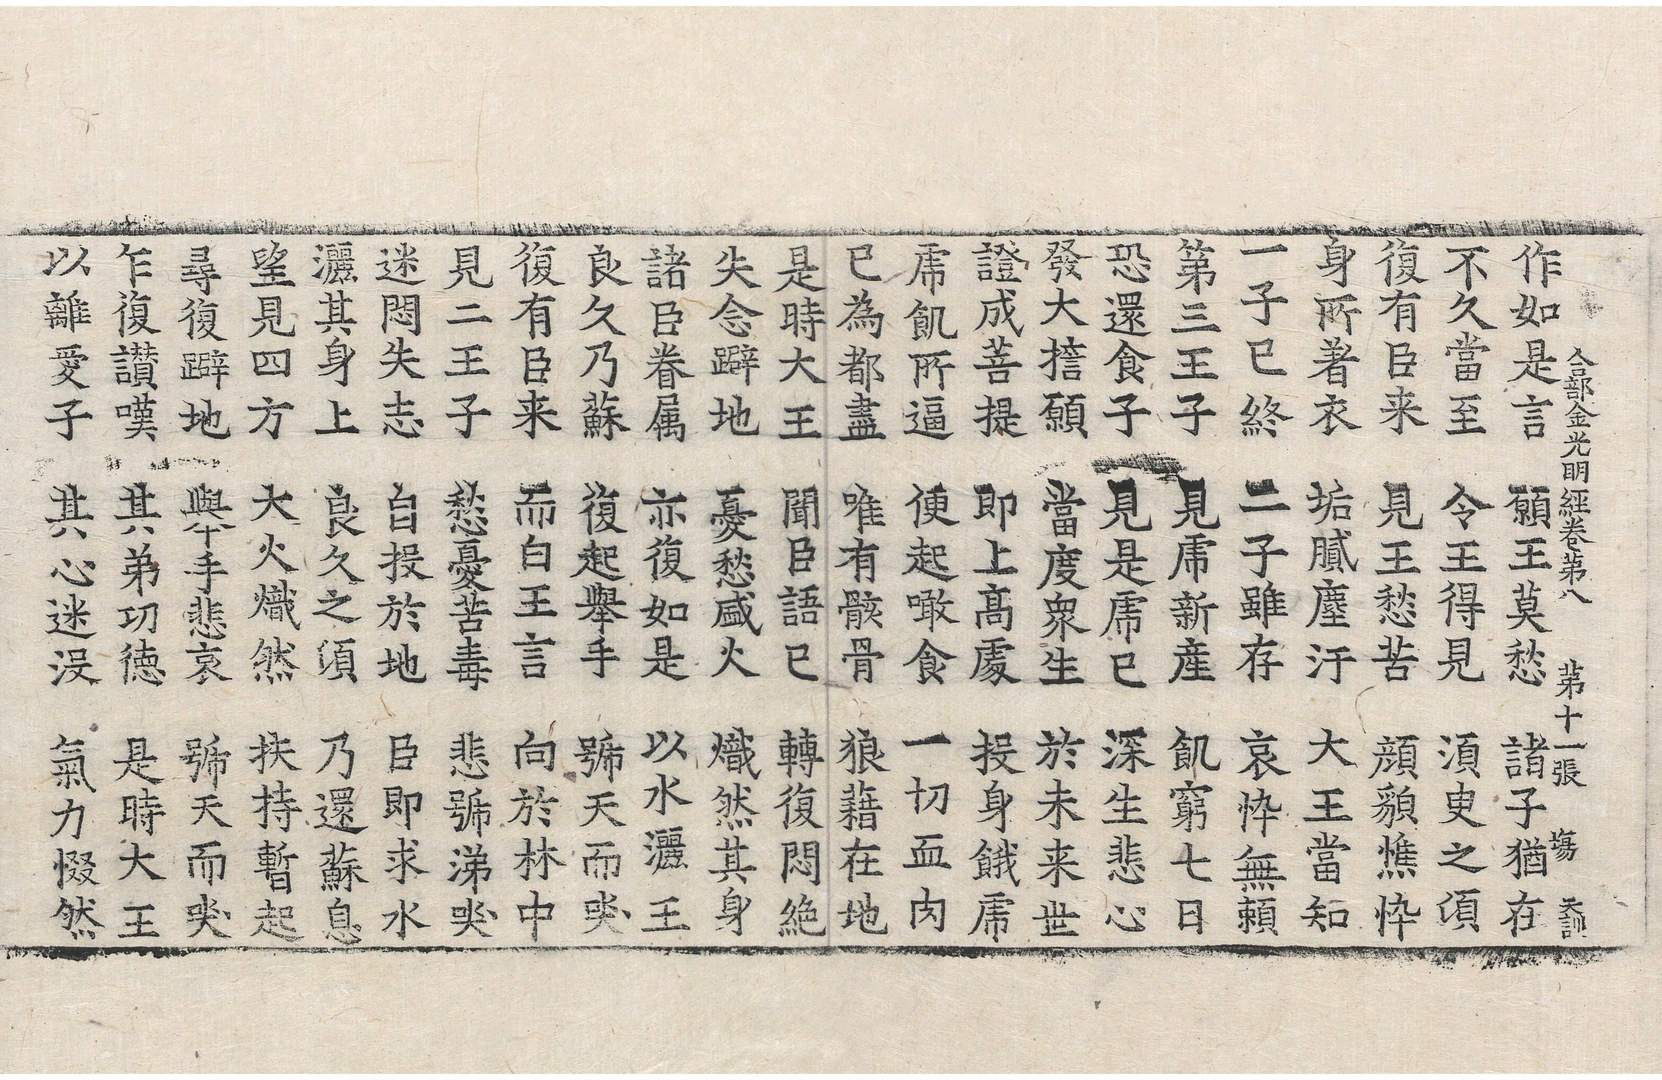 合部金光明經卷第八　第十一張　塲　天訓
作如是言　願王莫愁　諸子猶在
不久當至　令王得見　湏臾之湏
復有臣来　見王愁苦　顔貌憔悴
身所著衣　垢膩塵汙　大王當知
一子已終　二子雖存　哀悴無賴
第三王子　見虎新産　飢窮七日
恐還食子　見是虎已　深生悲心
發大擔願　當度衆生　於未来世
證成菩提　即上髙處　投身餓虎
虎飢所逼　便起噉食　一切血肉
已為都盡　唯有骸骨　狼藉在地
是時大王　聞臣語已　轉復悶絶
失念躃地　憂愁盛火　熾然其身
諸臣眷属　亦復如是　以水灑王
良久乃蘇　復起舉手　號天而哭
復有臣来　而白王言　向於林中
見二王子　愁憂苦毒　悲號涕哭
迷悶失志　自投於地　臣即求水
灑其身上　良久之湏　乃還蘇息
望見四方　大火熾然　扶持暫起
尋復躃地　舉手悲哀　號天而哭
乍復讃嘆　其弟功徳　是時大王
以離愛子　其心迷没　氣力惙然